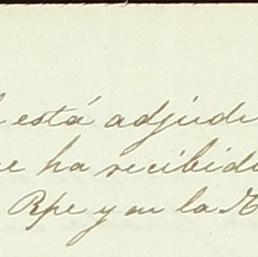 está adjudi
ha recibido
Rpe y en la